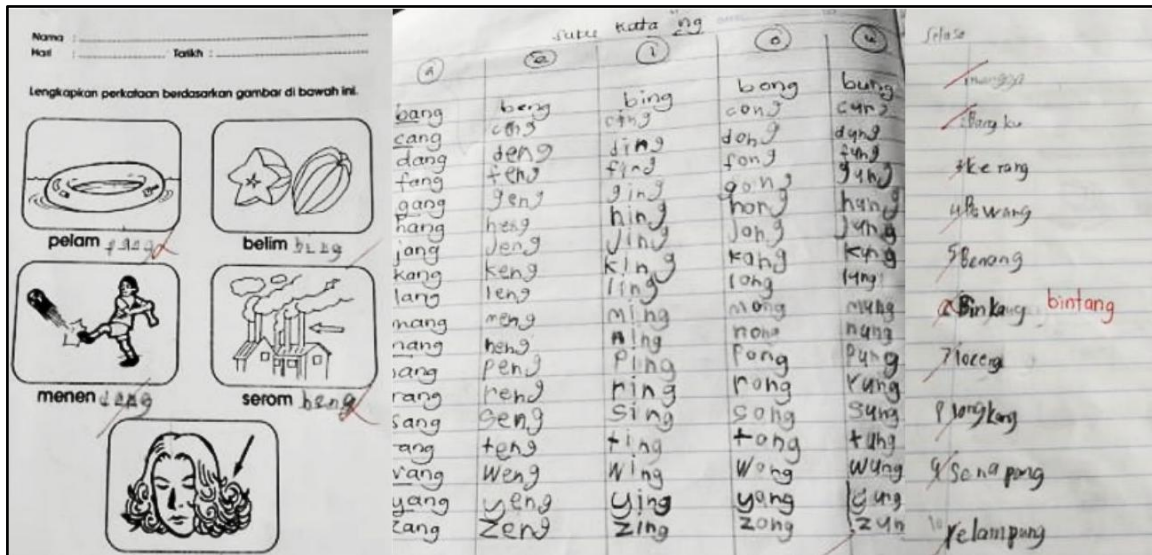 Nama :
Hari : Tarikh :
Lengkapkan perkataan berdasarkan gambar di bawah ini.
pelam
belim bing
menen dang
serom beng
suku kata ng
a e i o u
bang beng bing bong bung
cang ceng cing cong cung
dang deng ding dong dung
fang feng fing fong fung
gang geng ging gong gung
hang heng hing hong hung
jang jeng jing jong jung
kang keng king kong kung
lang leng ling long lung
mang meng ming mong mung
nang neng ning nong nung
ang peng ping pong pung
rang reng ring rong rung
sang seng sing song sung
ang teng ting tong tung
wang weng wing wong wung
yang yeng ying yong yung
zang zeng zing zong zun
Selasa
mangga
Bangku
3 Kerang
4 Pawang
5 Benang
Binkang bintang
7 loceng
8 longkang
9 senapang
10 Pelampung